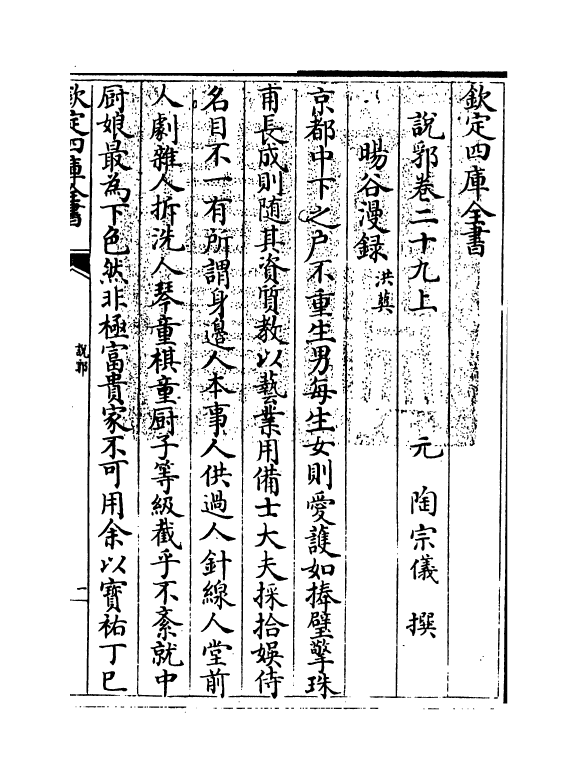 欽定四庫全書
說郛卷二十九上　元　陶宗儀　撰
暘谷漫録洪巽
京都中下之户不重生男每生女則愛護如捧璧擎珠
甫長成則随其資質教以藝業用備士大夫採拾娱侍
名目不一有所謂身邊人本事人供過人針線人堂前
人劇雜人拆洗人琴童棋童厨子等級截乎不紊就中
厨娘最為下色然非極富貴家不可用余以寳祐丁巳
欽定四庫全書
說郛
二